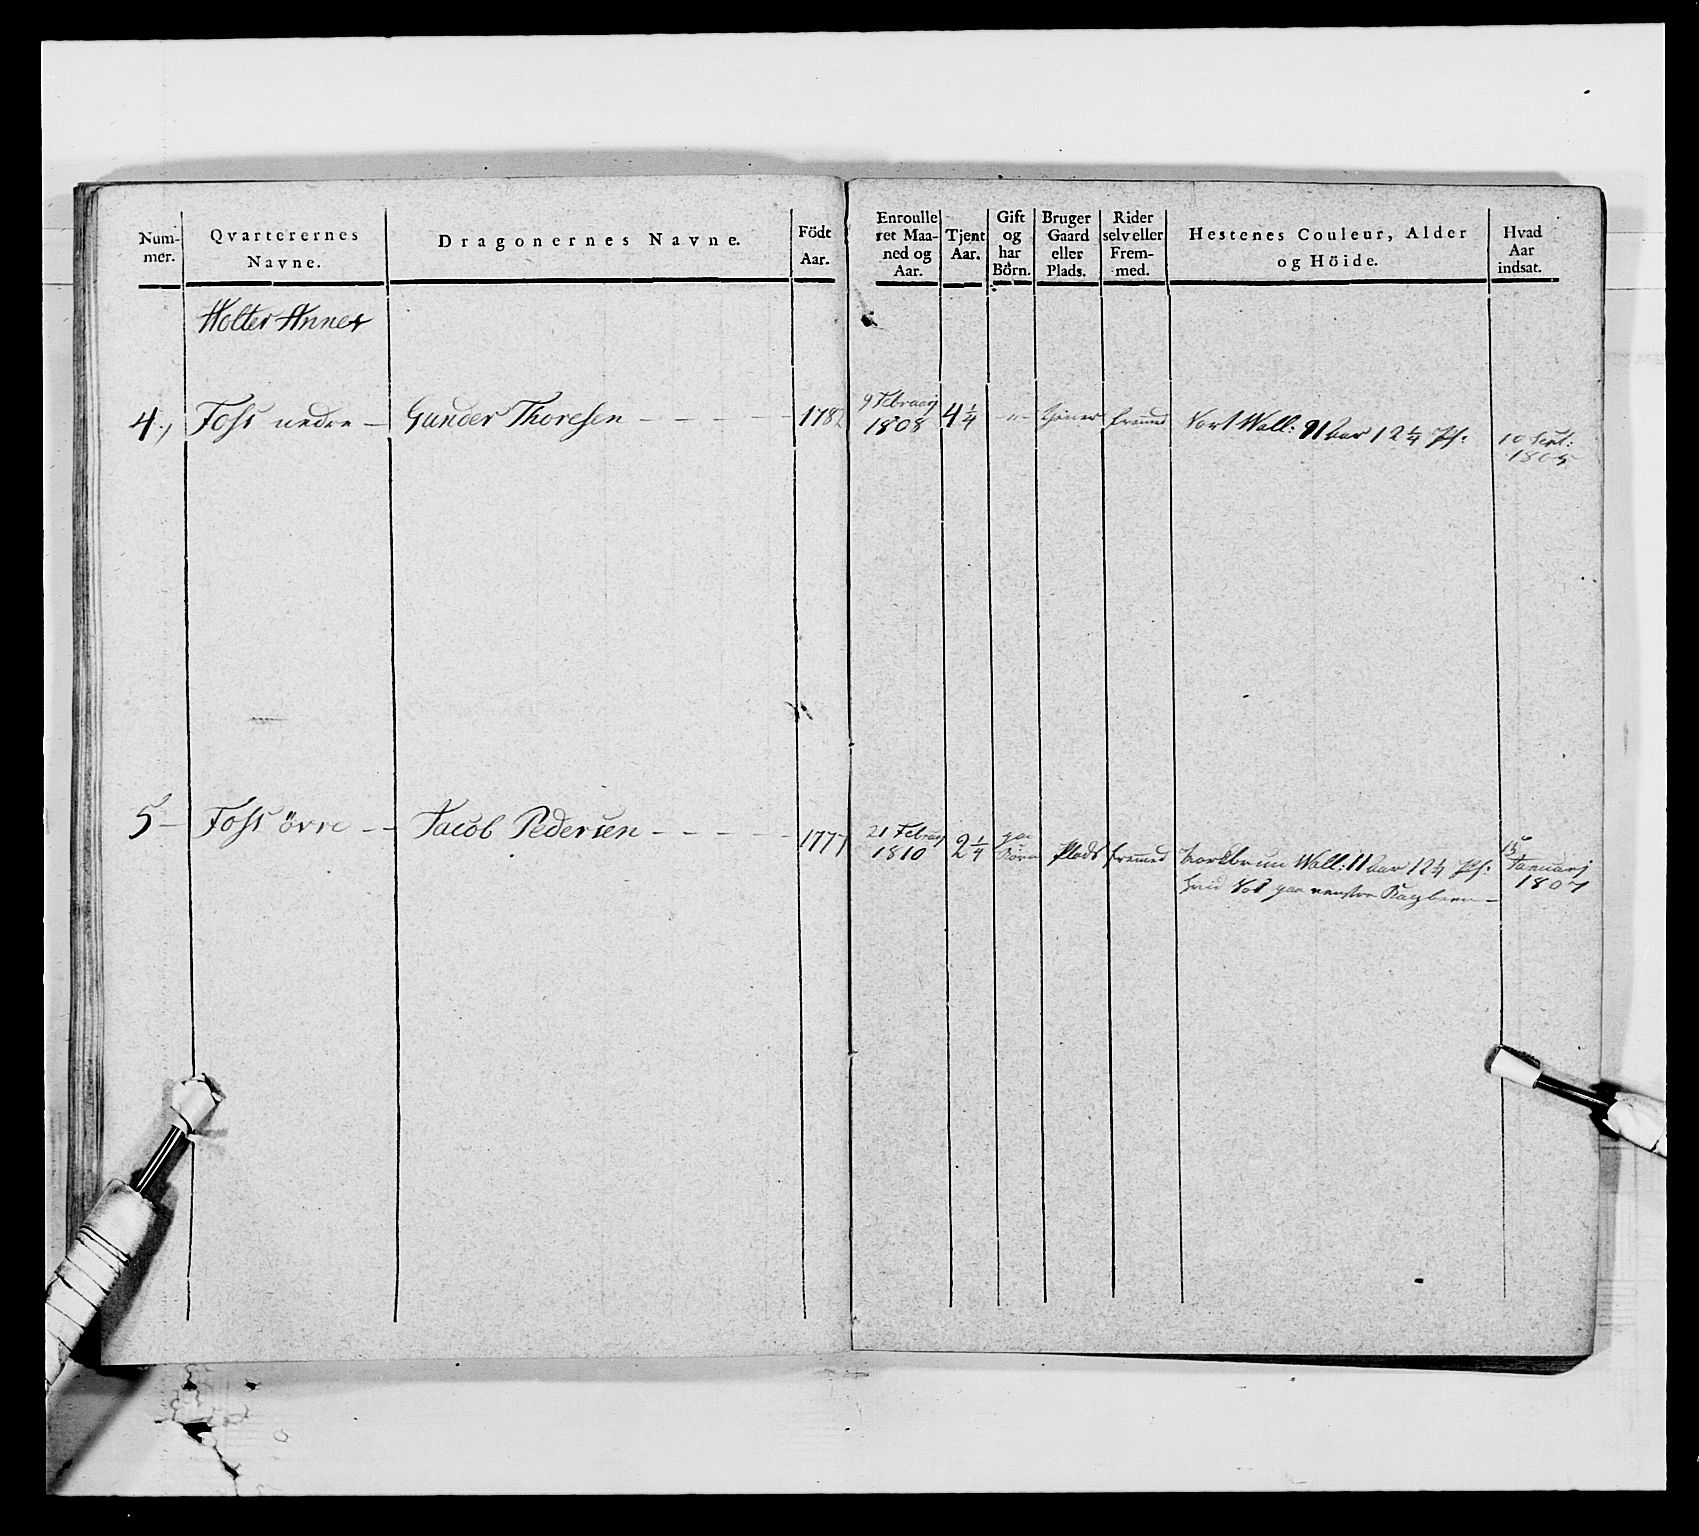 Num-
mer.
Qvarterernes
Navne.
Dragonernes Navne.
Födt
Aar.
Enroulle
ret Maa-
ned og
Aar.
Tjent
Aar.
Gift
og
har
Börn.
Bruger
Gaard
eller
Plads.
Rider
selv eller
Frem-
med.
Hestenes Couleur, Alder
og Höide.
Hvad
Aar
indsat.
Holter Annex
4., Foss nedre — Gunder Thoresen - - - - 1782
9 Februarj
1808
4 1/4 - " - tjener fremmed Sort Wall: 11 Aar 12 1/4 Pf:
10 Sept:
1805
5 — Foss övre - - Jacob Pedersen - - - - 1777
21 Februarj
1810
2 1/4
Börn
Plads fremmed Sortbrun Wall: 11 Aar 12 1/4 Pf:
hvid paa venstre Bagbeen —
15
Januarj
1807